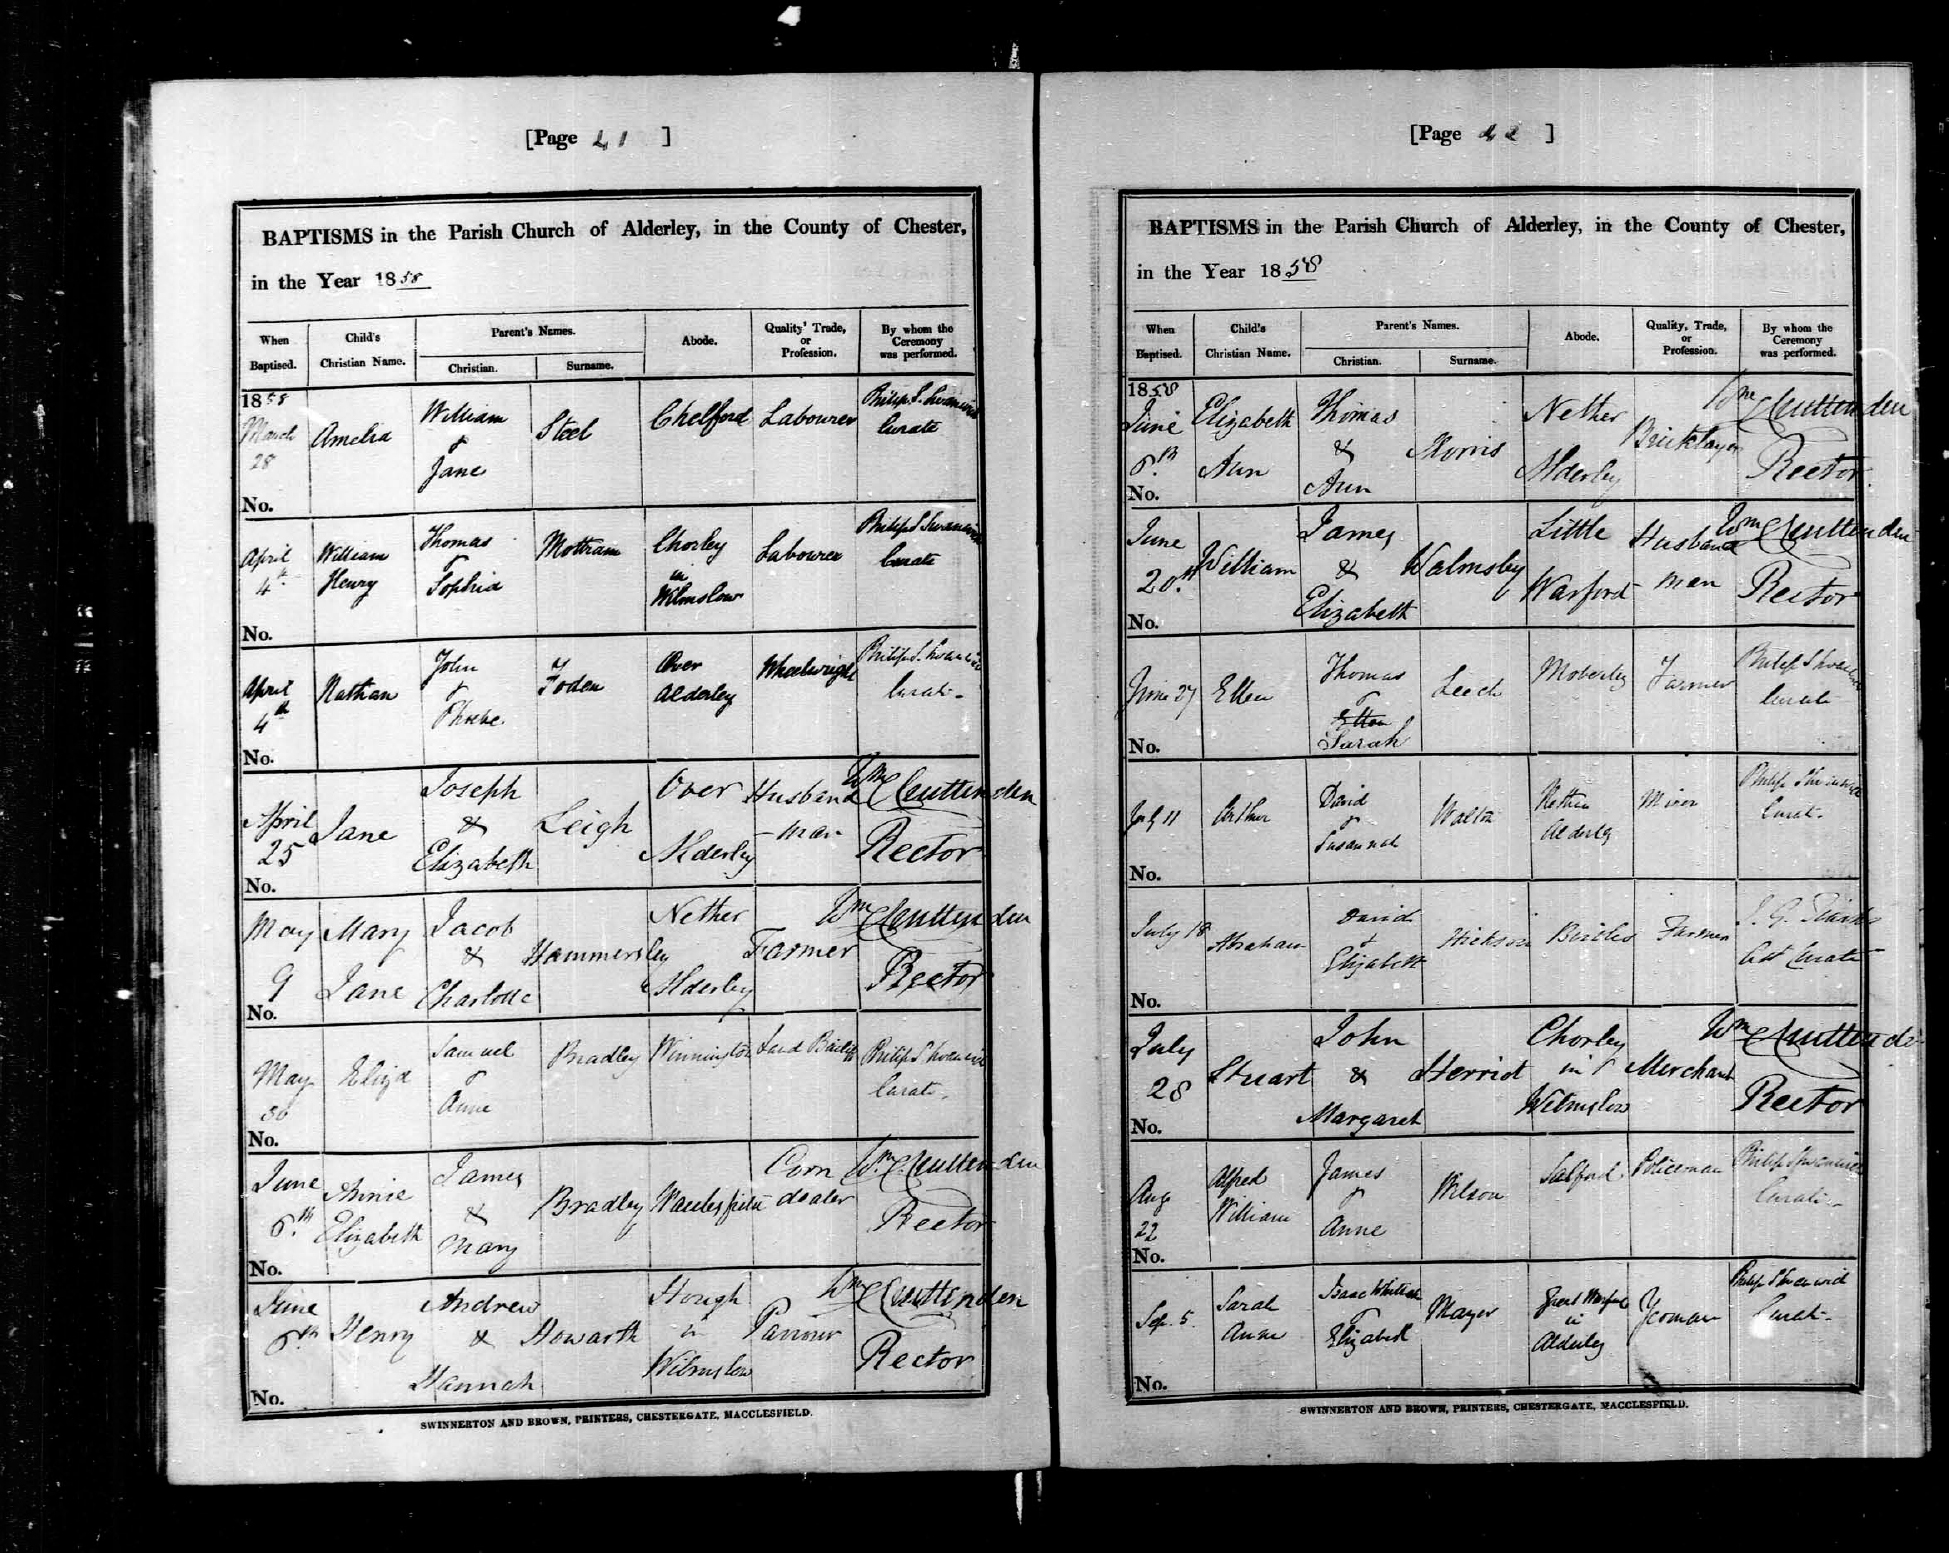 [Page 41 ]
BAPTISMS in the Parish Church of Alderley, in the County of Chester,
in the Year 1858
When Baptised.
Child's Christian Name.
Parent's Names.
Christian.
Surname.
Abode.
Quality' Trade, or Profession.
By whom the Ceremony was performed.
1858
March 28
Amelia
William & Jane
Steel
Chelford
Labourer
Philip S.
Curate
No.
April 4th
William Henry
Thomas & Sophia
Mottram
Chorley in Wilmslow
Labourer
Philip S
Curate
No.
April 4th
Nathan
John & Phoebe
Foden
Over Alderley
Wheelwright
Philip S.
Curate
No.
April 25
Jane
Joseph & Elizabeth
Leigh
Over Alderley
Husband-man
Wm
Rector
No.
May 9
Mary Jane
Jacob & Charlotte
Hammersley
Nether Alderley
Farmer
Wm
Rector
No.
May 30
Eliza
Samuel & Anne
Bradley
Winnington
Land Bailiff
Philip S
Curate
No.
June 6th
Annie Elizabeth
James & Mary
Bradley
Corn dealer
Wm
Rector
No.
June 6th
Henry
Andrew & Hannah
Howarth
Hough in Wilmslow
Paviour
Wm
Rector
No.
SWINNERTON AND BROWN, PRINTERS, CHESTERGATE, MACCLESFIELD.
[Page 42 ]
BAPTISMS in the Parish Church of Alderley, in the County of Chester,
in the Year 1858
When Baptised.
Child's Christian Name.
Parent's Names.
Christian.
Surname.
Abode.
Quality, Trade, or Profession.
By whom the Ceremony was performed.
1858
June 6th
Elizabeth Ann
Thomas & Ann
Morris
Nether Alderley
Bricklayer
Wm
Rector
No.
June 20th
William
James & Elizabeth
Walmsley
Little Warford
Husband man
Wm
Rector
No.
June 27
Ellen
Thomas & Sarah
Leech
Moberley
Farmer
Philip S
Curate
No.
July 11
Arthur
David & Susannah
Walton
Nether Alderley
Miner
Philip
Curate
No.
July 18
Abraham
David & Elizabeth
Hickson
Birtles
Farmer
J. G.
Curate
No.
July 28
Stuart
John & Margaret
Herriot
Chorley in Wilmslow
Merchant
Wm
Rector
No.
Aug 22
Alfred William
James & Anne
Wilson
Salford
Policeman
Philip S
Curate
No.
Sep. 5.
Sarah Anne
Isaac & Elizabeth
Mayer
Great Warford in Alderley
Yeoman
Philip S
Curate
No.
SWINNERTON AND BROWN, PRINTERS, CHESTERGATE, MACCLESFIELD.